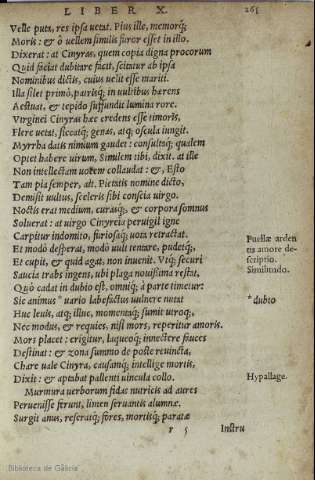 LIBER X. 265
Velle puta, res ipsa uetat. Pius ille, memorq́;
Moris: & ô uellem similis furor esset in illo.
Dixerat: at Cinyras, quem copia digna procorum
Quid faciat dubitare facit, scitatur ab ipsa
Nominibus dictis, cuius uelit esse mariti.
Illa silet primò, patrisq́; in uultibus hærens
Aestuat, & tepido suffundit lumina rore.
Virginei Cinyras hæc credens esse timoris,
Flere uetat, siccatq́; genas, atq́; oscula iungit.
Myrrha datis nimium gaudet: consultaq́;, qualem
Optet habere uirum, Similem tibi, dixit. at ille
Non intellectam uocem collaudat: &, Esto
Tam pia semper, ait. Pietatis nomine dicto,
Demisit uultus, sceleris sibi conscia uirgo.
Noctis erat medium, curasq́;, & corpora somnus
Soluerat: at uirgo Cinyreia peruigil igne
Carpitur indomito, furiosaq́; uota retractat.
Puellæ arden
Et modò desperat, modò uult tentare, pudetq́;,
tis amore de-
Et cupit, & quid agat, non inuenit. Vtq́; securi
scriptio.
Saucia trabs ingens, ubi plaga nouissima restat,
Similitudo.
Quò cadat in dubio est, omniq́; à parte timetur:
Sic animus * uario labefactus uulnere nutat
* dubio
Huc leuis, atq́; illuc, momentaq́; sumit utroq́;,
Nec modus, & requies, nisi mors, reperitur amoris.
Mors placet: erigitur, laqueoq́; innectere fauces
Destinat: & zona summo de poste reuincta,
Chare uale Cinyra, causamq́; intellige mortis,
Dixit: & aptabat pallenti uincula collo.
Hypallage.
Murmura uerborum fidas nutricis ad aures
Peruenisse ferunt, limen seruantis alumnæ.
Surgit anus, reseratq́; fores, mortisq́; paratæ
r 5 Instru
Biblioteca de Galicia